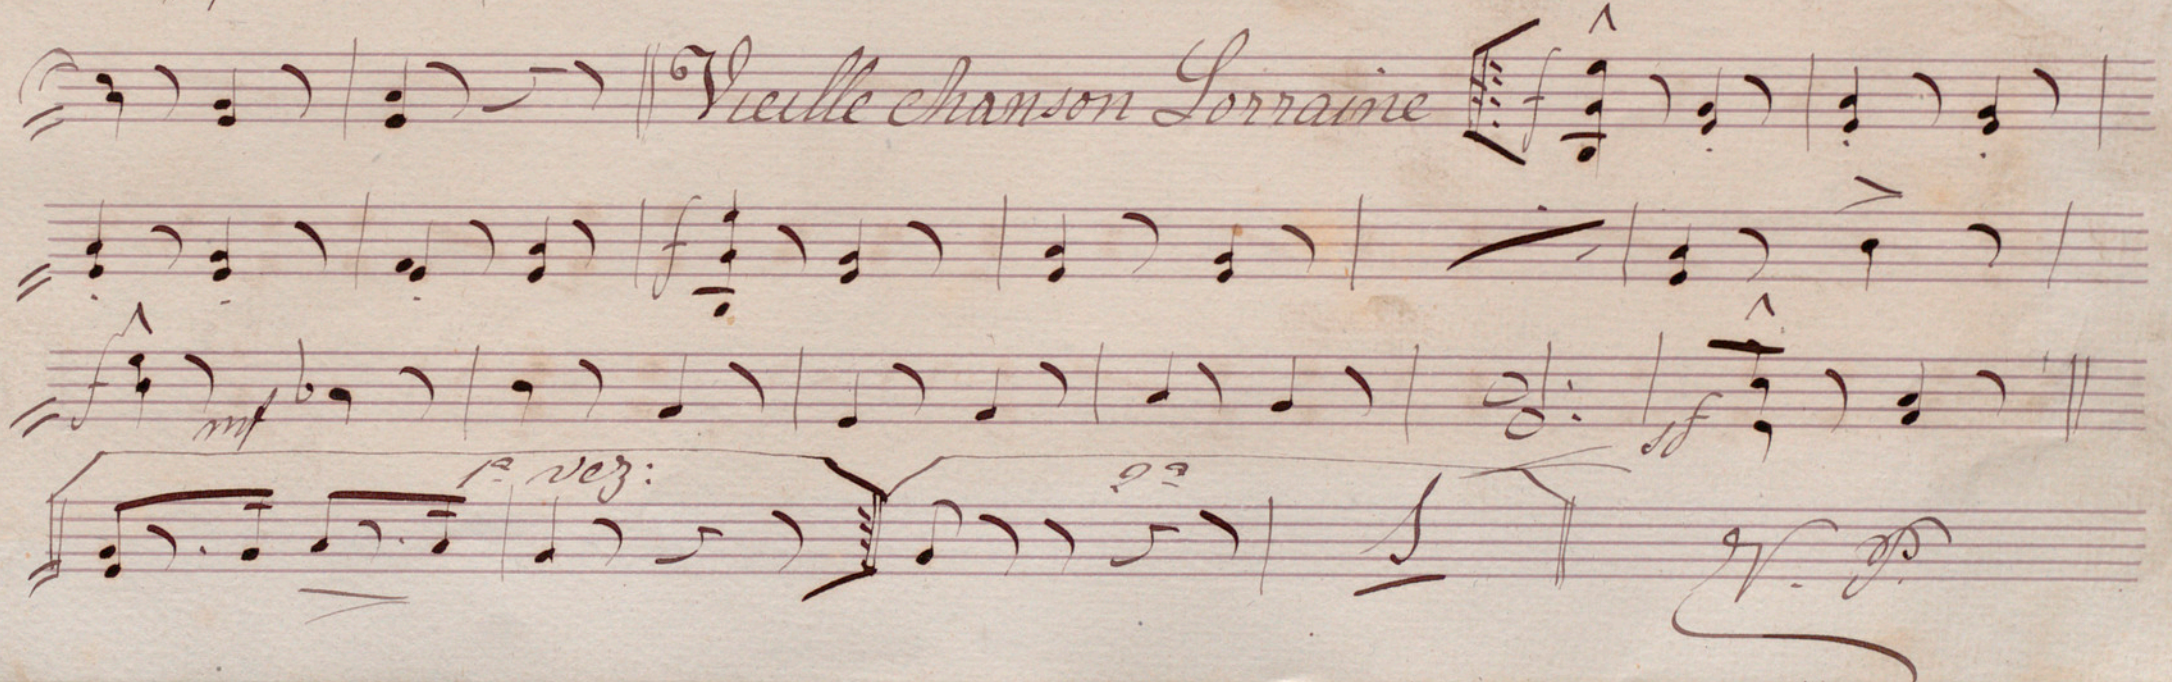 Vieille chanson Lorraine f
f
f mf sf
1ª vez: 2ª
V. P.